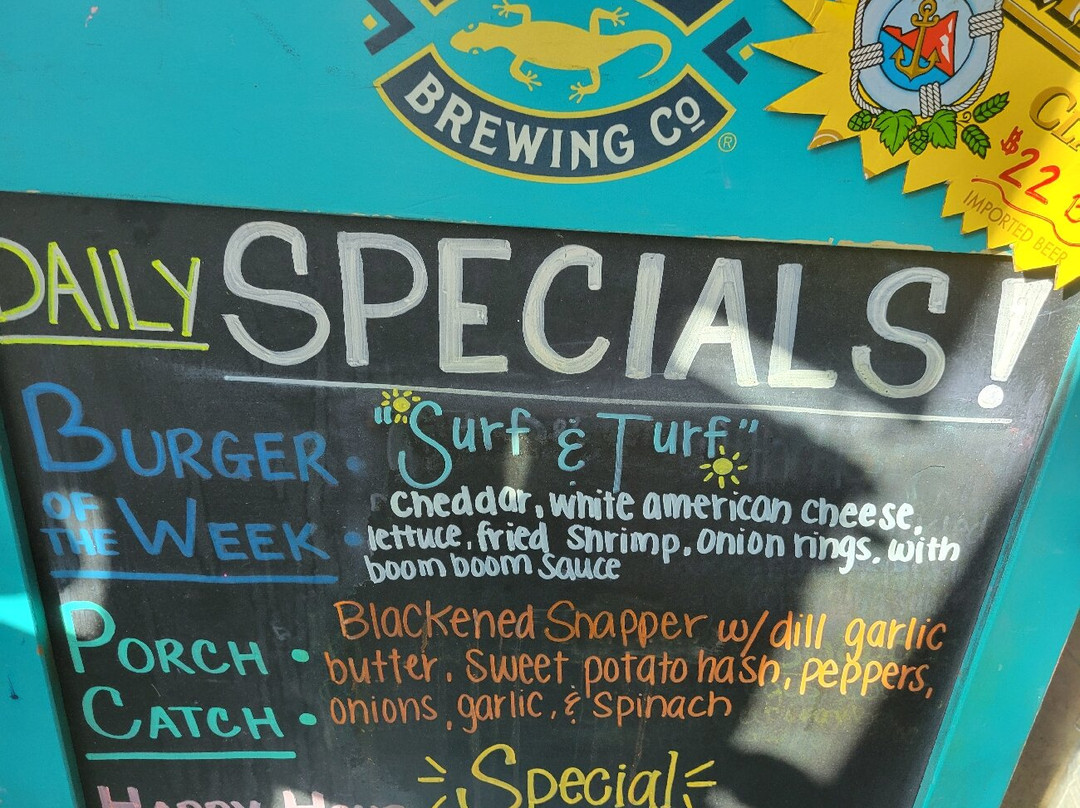 BREWING Co ®
$22
IMPORTED BEER
DAILY SPECIALS!
BURGER OF THE WEEK
"Surf & Turf"
Cheddar, white american cheese,
lettuce, fried shrimp, onion rings, with
boom boom sauce
PORCH CATCH
Blackened Snapper w/ dill garlic
butter, sweet potato hash, peppers,
onions, garlic, & spinach
Special